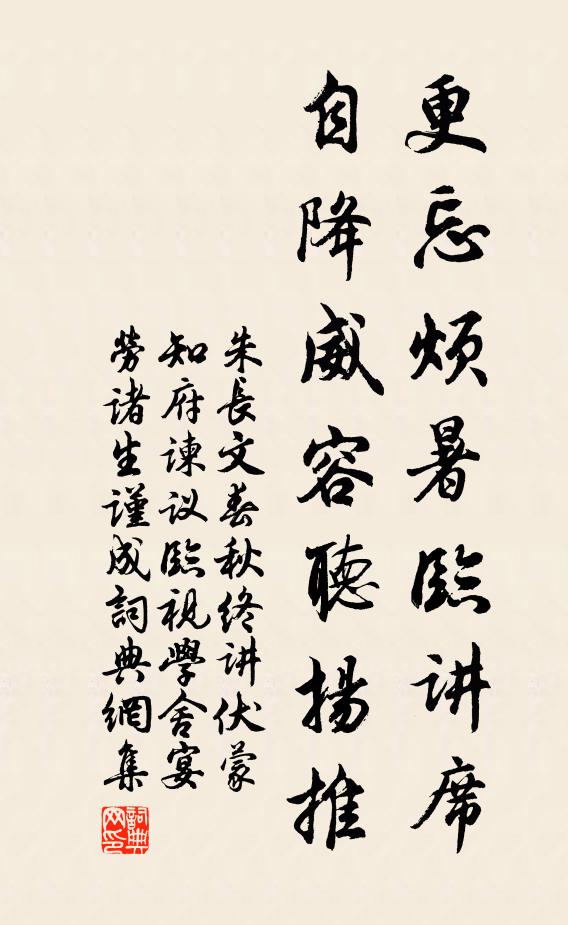 更忘烦暑臨讲席
自降威容聽揚推
朱長文春秋终讲伏蒙
知府谏议臨视學舍宴
劳诸生谨成詞典網集
詞典網印